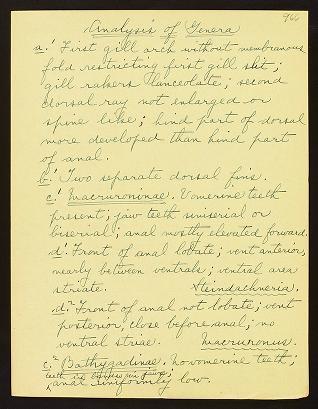 966
Analysis of Genera
a.' First gill arch without membranous
fold restricting first gill slit;
gill rakers lanceolate; second
dorsal ray not enlarged or
spine like; hind part of dorsal
more developed than hind part
of anal.
b.' Two separate dorsal fins.
c.' Macruroninae. Vomerine teeth
present; jaw teeth uniserial or
biserial; anal mostly elevated forward.
d.' Front of anal lobate; vent anterior,
nearly between ventrals; ventral area
striate. Steindachneria.
d.² Front of anal not lobate; vent
posterior, close before anal; no
ventral striae. Macruronus.
c.² Bathygadinae. No vomerine teeth;
teeth in jaws;
anal uniformly low.